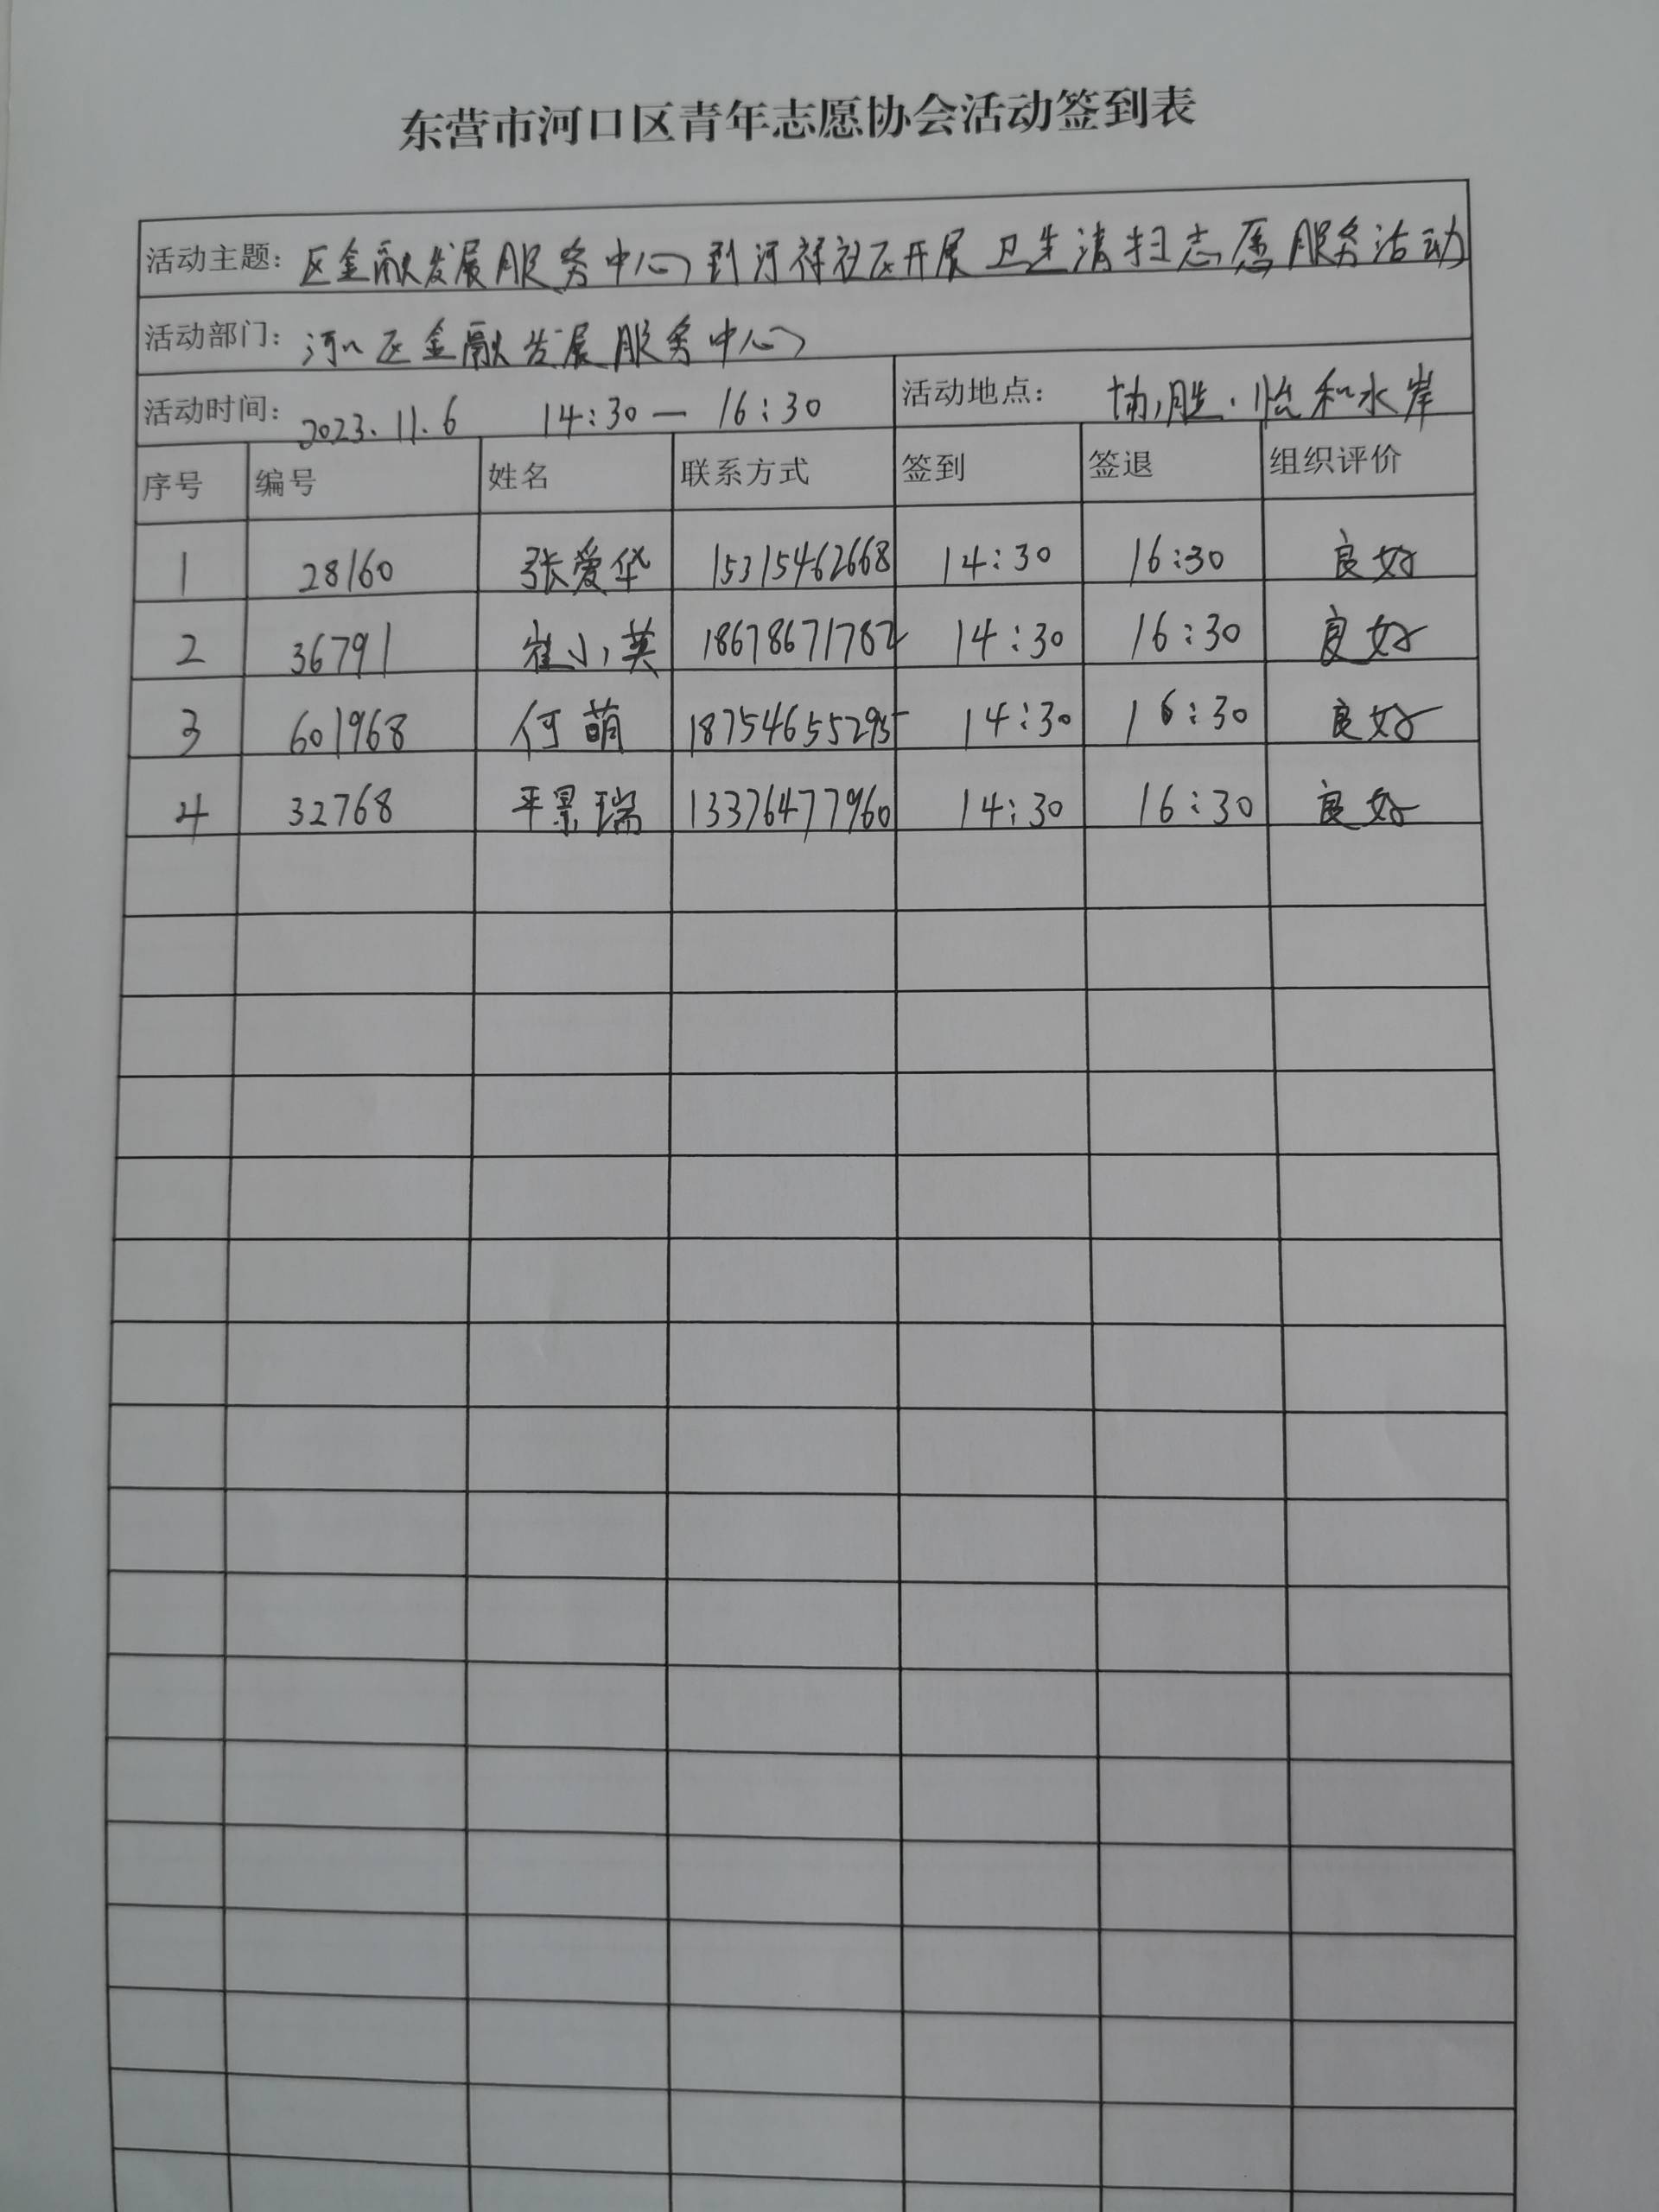 东营市河口区青年志愿协会活动签到表
活动主题：区金融发展服务中心到河祥社区开展卫生清扫志愿服务活动
活动部门：河口区金融发展服务中心
活动时间：2023.11.6 14:30—16:30 活动地点：协胜·怡和水岸
序号 编号 姓名 联系方式 签到 签退 组织评价
1 28160 张爱华 15315462668 14:30 16:30 良好
2 36791 崔小英 18678671782 14:30 16:30 良好
3 601968 何萌 18754655295 14:30 16:30 良好
4 32768 平景瑞 13376477960 14:30 16:30 良好